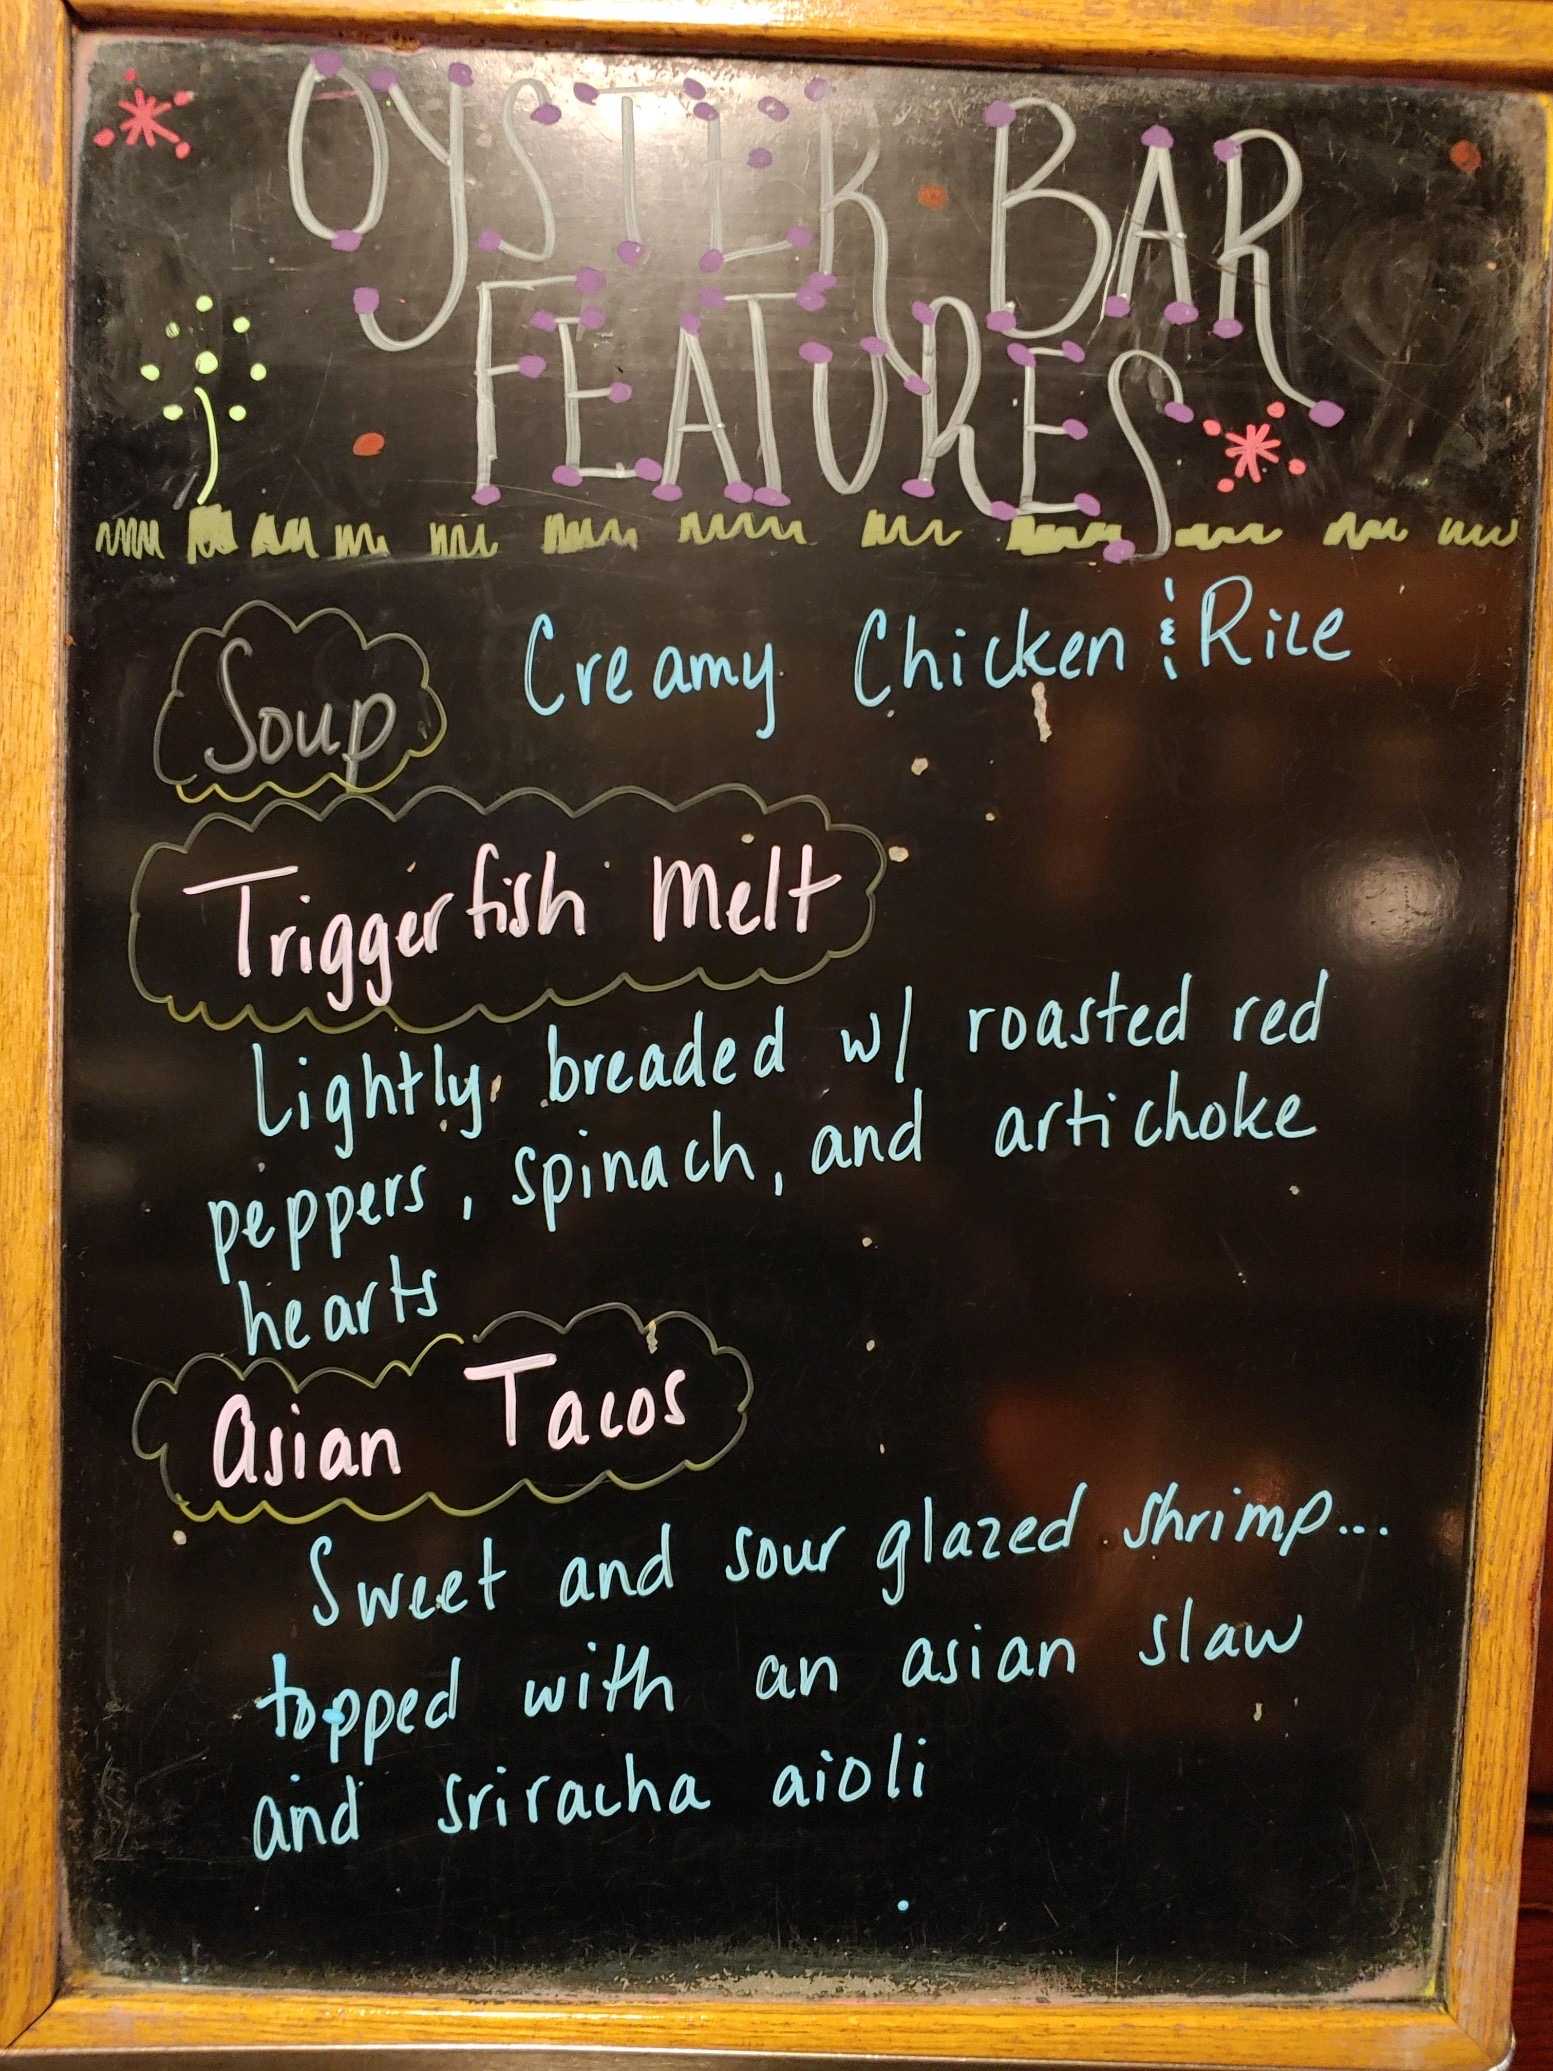 OYSTER BAR
FEATURES
Soup Creamy Chicken & Rice
Triggerfish Melt
Lightly breaded w/ roasted red
peppers, spinach, and artichoke
hearts
Asian Tacos
Sweet and sour glazed shrimp...
topped with an asian slaw
and sriracha aioli